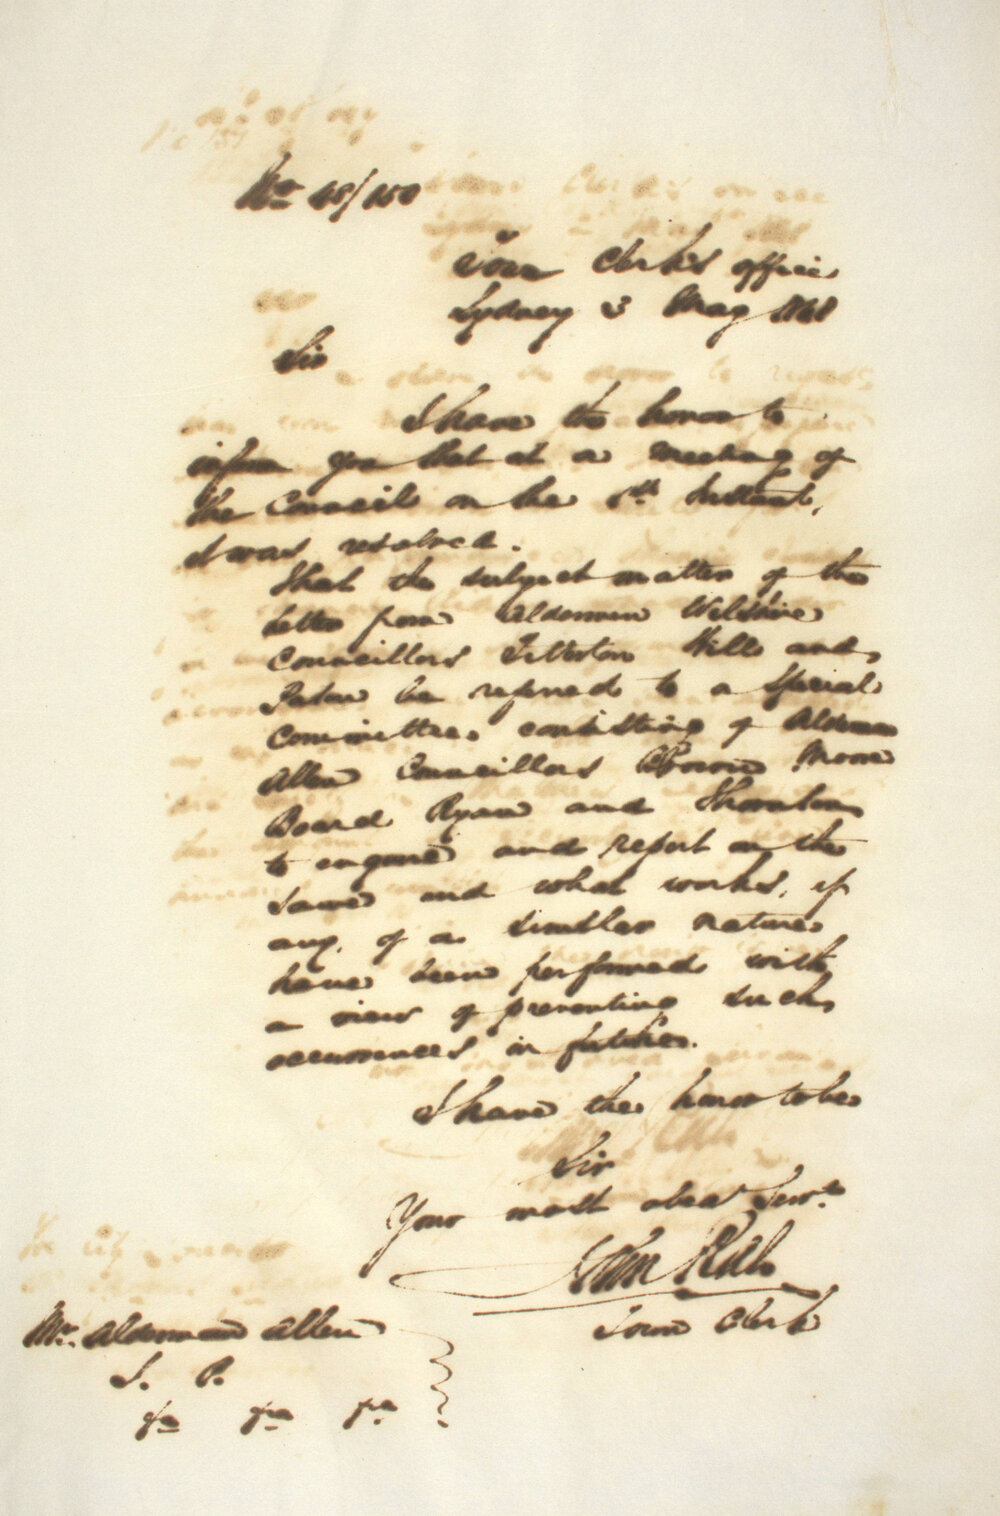 No 48/150
Town Clerk's office
Sydney 3 May 1848
Sir
I have the honor to
inform you that at a meeting of
the Council on the 1st Instant,
it was resolved.
That the subject matter of the
letter from Alderman Wilshire
Councillors Iredale Hill and
be referred to a Special
Committee consisting of Alderman
Allen Councillors Brown Moore
Board Ryan and Thornton
to enquire and report on the
same and what works, if
any, of a similar nature
have been performed with
a view of preventing such
occurrences in future.
I have the honor to be
Sir
Your most obedt Servt
Town Clerk
Mr. Alderman Allen
J. P.